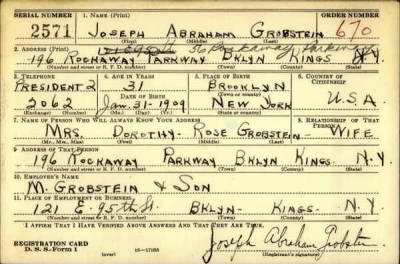 SERIAL NUMBER 1. NAME (Print) ORDER NUMBER
2571 JOSEPH ABRAHAM GROBSTEIN 670
(First) (Middle) (Last)
2. ADDRESS (Print)
196 ROCKAWAY PARKWAY BKLYN KINGS N.Y.
(Number and street or R. F. D. number) (Town) (County) (State)
3. TELEPHONE 4. AGE IN YEARS 5. PLACE OF BIRTH 6. COUNTRY OF CITIZENSHIP
PRESIDENT 2 31 BROOKLYN
DATE OF BIRTH (Town or county)
2062 Jan. 31-1909 NEW YORK U.S.A.
7. NAME OF PERSON WHO WILL ALWAYS KNOW YOUR ADDRESS 8. RELATIONSHIP OF THAT PERSON
MRS. DOROTHY ROSE GROBSTEIN - WIFE
(Mr., Mrs., Miss) (First) (Middle) (Last)
9. ADDRESS OF THAT PERSON
196 ROCKAWAY PARKWAY BKLYN KINGS. N.Y.
(Number and street or R. F. D. number) (Town) (County) (State)
10. EMPLOYER'S NAME
M. GROBSTEIN & SON
11. PLACE OF EMPLOYMENT OR BUSINESS
121 E. 95th St. BKLYN- KINGS- N.Y.
(Number and street or R. F. D. number) (Town) (County) (State)
I AFFIRM THAT I HAVE VERIFIED ABOVE ANSWERS AND THAT THEY ARE TRUE.
REGISTRATION CARD
D. S. S. Form 1 (over) Joseph Abraham Grobstein
(Registrant's signature)